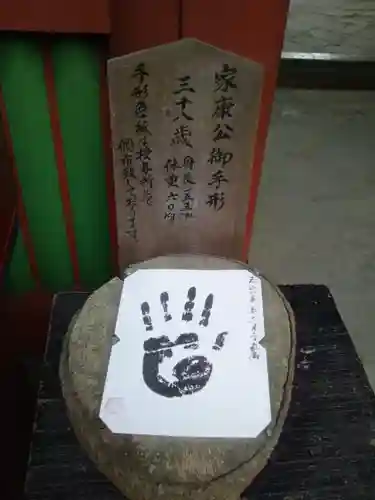 家康公御手形
三十八歳
身長一五五㎝
体重六〇㎏
手形色紙は授与所にて
個布致して居ります